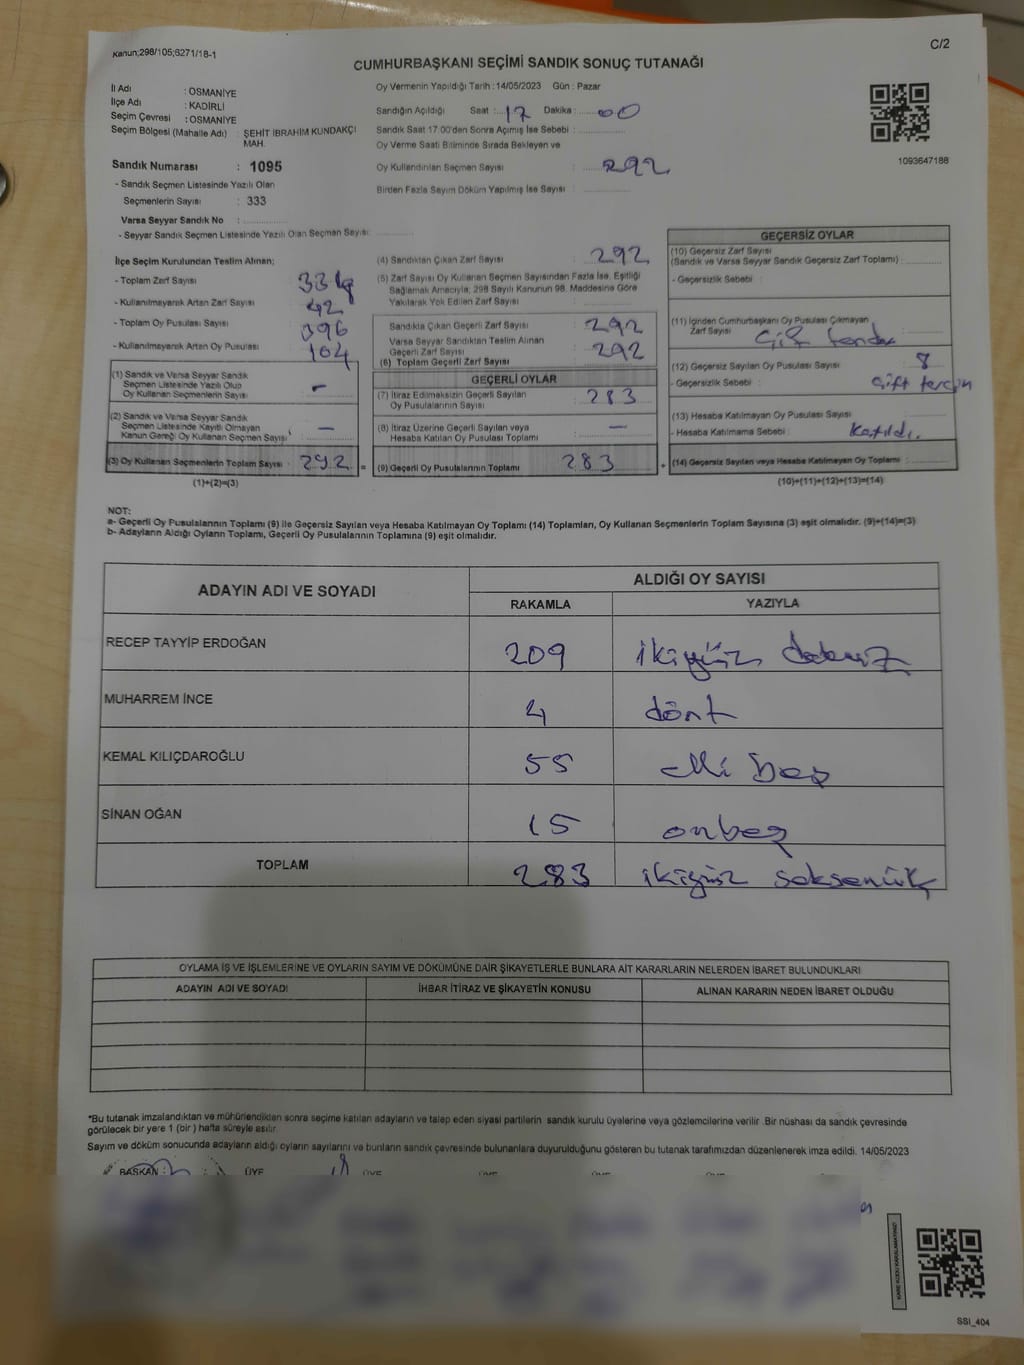 Kanun;298/105;6271/18-1
C/2
CUMHURBAŞKANI SEÇİMİ SANDIK SONUÇ TUTANAĞI
İl Adı : OSMANİYE
İlçe Adı : KADİRLİ
Seçim Çevresi : OSMANİYE
Seçim Bölgesi (Mahalle Adı) : ŞEHİT İBRAHİM KUNDAKÇI MAH.
Sandık Numarası : 1095
- Sandık Seçmen Listesinde Yazılı Olan
Seçmenlerin Sayısı : 333
Varsa Seyyar Sandık No :
- Seyyar Sandık Seçmen Listesinde Yazılı Olan Seçmen Sayısı:
Oy Vermenin Yapıldığı Tarih : 14/05/2023 Gün : Pazar
Sandığın Açıldığı Saat : 17 Dakika : 00
Sandık Saat 17.00'den Sonra Açımış İse Sebebi :
Oy Verme Saati Bitiminde Sırada Bekleyen ve
Oy Kullandırılan Seçmen Sayısı : 292
Birden Fazla Sayım Döküm Yapılmış İse Sayısı :
1093647188
İlçe Seçim Kurulundan Teslim Alınan;
- Toplam Zarf Sayısı :
- Kullanılmayarak Artan Zarf Sayısı : 42
- Toplam Oy Pusulası Sayısı : 396
- Kullanılmayarak Artan Oy Pusulası : 104
(1) Sandık ve Varsa Seyyar Sandık
Seçmen Listesinde Yazılı Olup
Oy Kullanan Seçmenlerin Sayısı : -
(2) Sandık ve Varsa Seyyar Sandık
Seçmen Listesinde Kayıtlı Olmayan
Kanun Gereği Oy Kullanan Seçmen Sayısı : -
(3) Oy Kullanan Seçmenlerin Toplam Sayısı : 292 =
(1)+(2)=(3)
(4) Sandıktan Çıkan Zarf Sayısı : 292
(5) Zarf Sayısı Oy Kullanan Seçmen Sayısından Fazla İse, Eşitliği
Sağlamak Amacıyla; 298 Sayılı Kanunun 98. Maddesine Göre
Yakılarak Yok Edilen Zarf Sayısı :
Sandıkta Çıkan Geçerli Zarf Sayısı : 292
Varsa Seyyar Sandıktan Teslim Alınan
Geçerli Zarf Sayısı : 292
(6) Toplam Geçerli Zarf Sayısı
GEÇERLİ OYLAR
(7) İtiraz Edilmeksizin Geçerli Sayılan
Oy Pusulalarının Sayısı : 283
(8) İtiraz Üzerine Geçerli Sayılan veya
Hesaba Katılan Oy Pusulası Toplamı : -
(9) Geçerli Oy Pusulalarının Toplamı : 283 +
GEÇERSİZ OYLAR
(10) Geçersiz Zarf Sayısı
(Sandık ve Varsa Seyyar Sandık Geçersiz Zarf Toplamı) :
- Geçersizlik Sebebi :
(11) İçinden Cumhurbaşkanı Oy Pusulası Çıkmayan
Zarf Sayısı :
(12) Geçersiz Sayılan Oy Pusulası Sayısı : 8
- Geçersizlik Sebebi : Çift tercin
(13) Hesaba Katılmayan Oy Pusulası Sayısı :
- Hesaba Katılmama Sebebi : Katıldı.
(14) Geçersiz Sayılan veya Hesaba Katılmayan Oy Toplamı :
(10)+(11)+(12)+(13)=(14)
NOT:
a- Geçerli Oy Pusulalarının Toplamı (9) ile Geçersiz Sayılan veya Hesaba Katılmayan Oy Toplamı (14) Toplamları, Oy Kullanan Seçmenlerin Toplam Sayısına (3) eşit olmalıdır. (9)+(14)=(3)
b- Adayların Aldığı Oyların Toplamı, Geçerli Oy Pusulalarının Toplamına (9) eşit olmalıdır.
ADAYIN ADI VE SOYADI
ALDIĞI OY SAYISI
RAKAMLA YAZIYLA
RECEP TAYYİP ERDOĞAN 209 ikiyüz dokuz
MUHARREM İNCE 4 dört
KEMAL KILIÇDAROĞLU 55 elli beş
SİNAN OĞAN 15 onbeş
TOPLAM 283 ikiyüz seksenüç
OYLAMA İŞ VE İŞLEMLERİNE VE OYLARIN SAYIM VE DÖKÜMÜNE DAİR ŞİKAYETLERLE BUNLARA AİT KARARLARIN NELERDEN İBARET BULUNDUKLARI
ADAYIN ADI VE SOYADI İHBAR İTİRAZ VE ŞİKAYETİN KONUSU ALINAN KARARIN NEDEN İBARET OLDUĞU
*Bu tutanak imzalandıktan ve mühürlendikten sonra seçime katılan adayların ve talep eden siyasi partilerin sandık kurulu üyelerine veya gözlemcilerine verilir. Bir nüshası da sandık çevresinde
görülecek bir yere 1 (bir) hafta süreyle asılır.
Sayım ve döküm sonucunda adayların aldığı oyların sayılarını ve bunların sandık çevresinde bulunanlara duyurulduğunu gösteren bu tutanak tarafımızdan düzenlenerek imza edildi. 14/05/2023
BAŞKAN ÜYE ÜYE ÜYE ÜYE ÜYE
KARE KODU KARALAMAYINIZ!
SSI_404